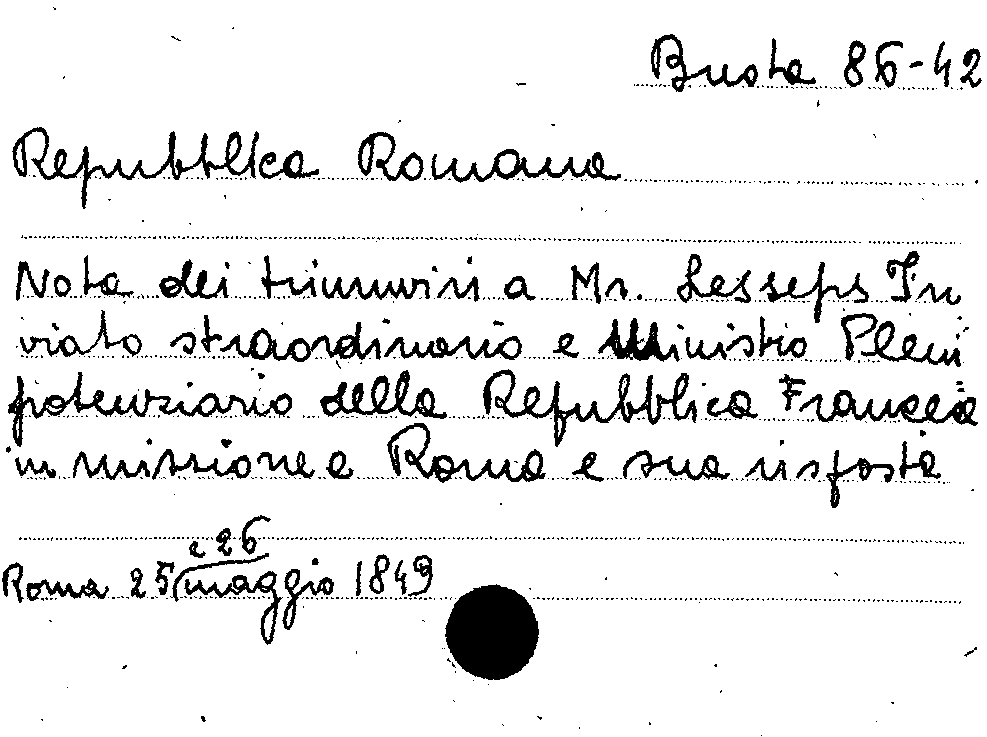 Busta 86-42
Repubblica Romana
Nota dei triumviri a Mr. Lesseps In
viato straordinario e Ministro Pleni
potenziario della Repubblica Francese
in missione a Roma e sua risposta
e 26
Roma 25 maggio 1849